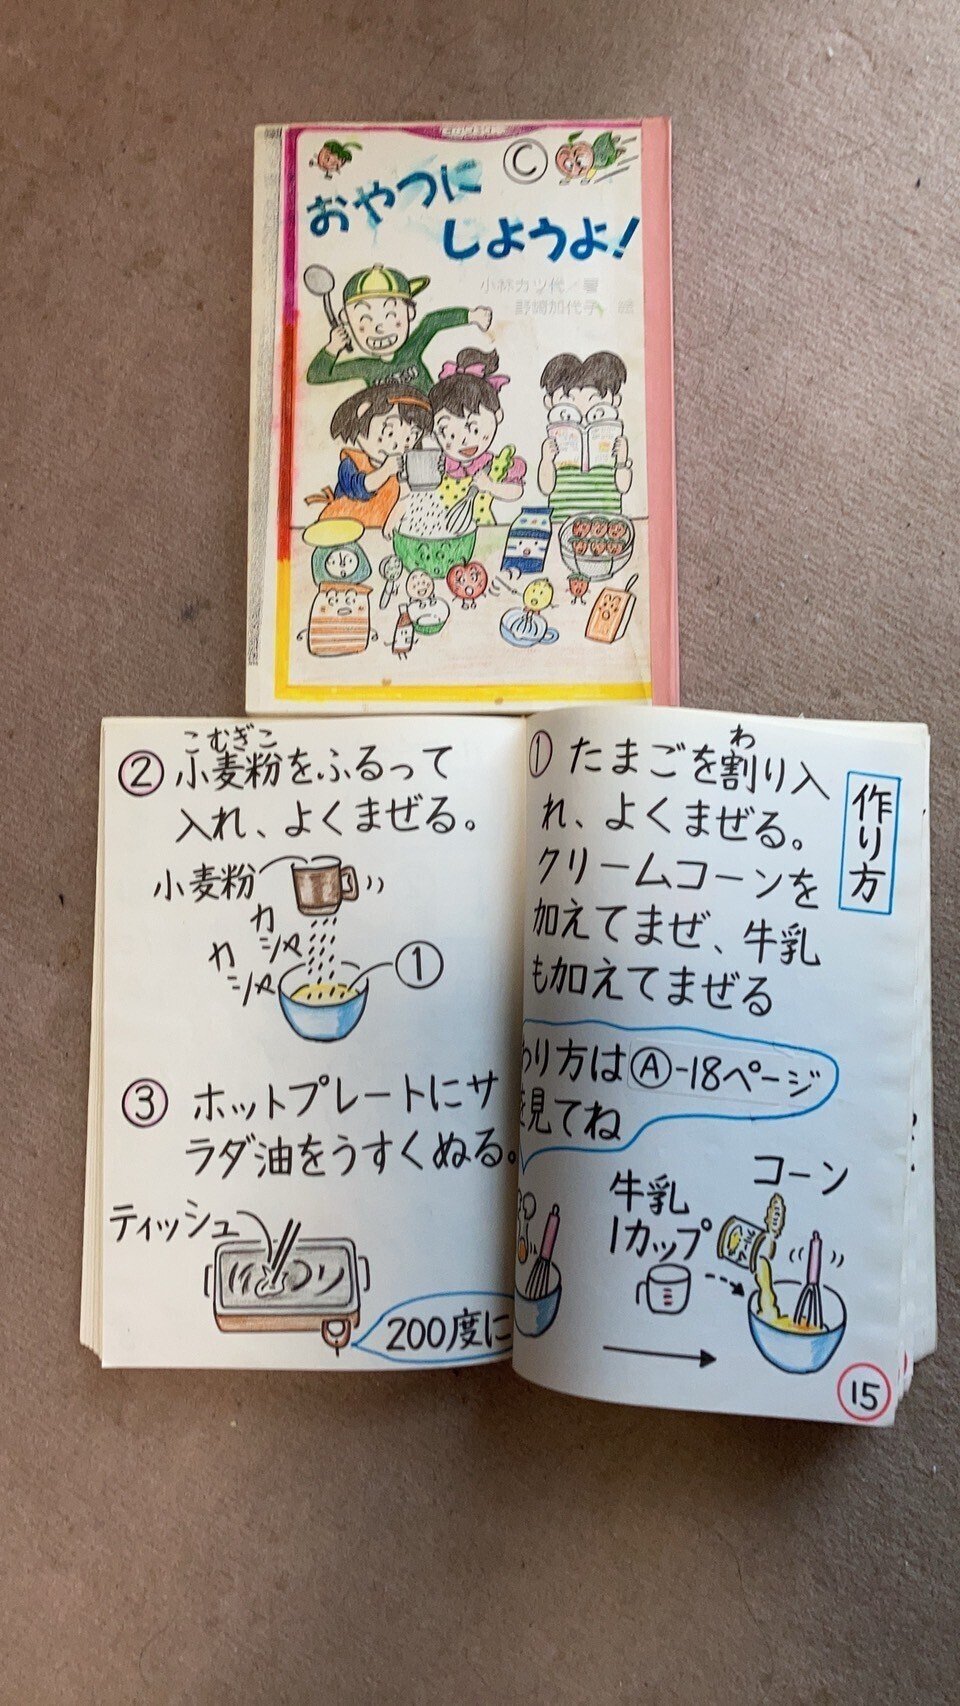 おやつに
しようよ!
Ⓒ
小林カツ代/著
野崎加代子 絵
作り方
① たまごを割り入
わ
れ、よくまぜる。
クリームコーンを
加えてまぜ、牛乳
も加えてまぜる
わり方はⒶ-18ページ
を見てね
コーン
牛乳
1カップ
15
こむぎこ
② 小麦粉をふるって
入れ、よくまぜる。
小麦粉
カシャ
カシャ
①
③ ホットプレートにサ
ラダ油をうすくぬる。
ティッシュ
200度に